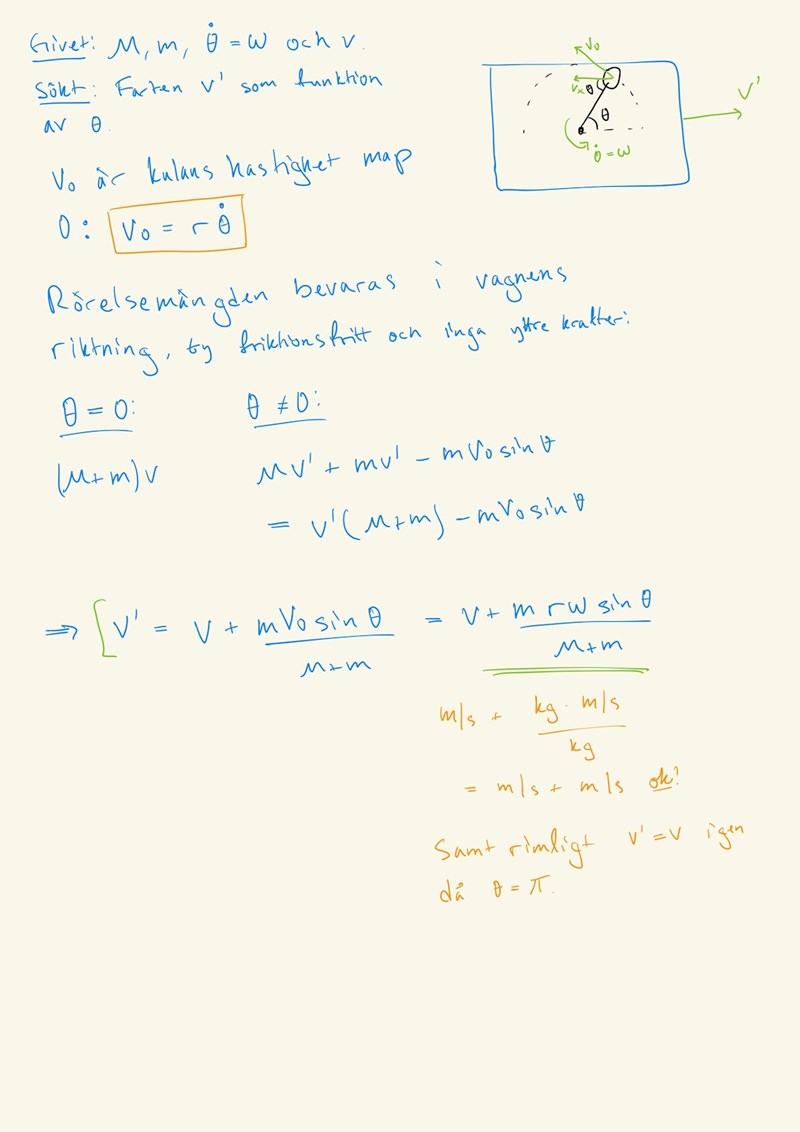 Givet: M, m, θ̇ = ω och v.
Sökt: Farten v' som funktion
av θ.
V₀ är kulans hastighet map
O: V₀ = r θ̇
V₀
Vx θ
θ
θ̇ = ω
V'
Rörelsemängden bevaras i vagnens
riktning, ty friktionsfritt och inga yttre krafter:
θ = 0:
θ ≠ 0:
(M+m)v
Mv' + mv' - mV₀ sin θ
= v'(M+m) - mV₀ sin θ
⇒ [ V' = V + mV₀ sin θ / M+m = V + m r ω sin θ / M+m
m/s + kg · m/s / kg
= m/s + m/s ok!
Samt rimligt v' = v igen
då θ = π.